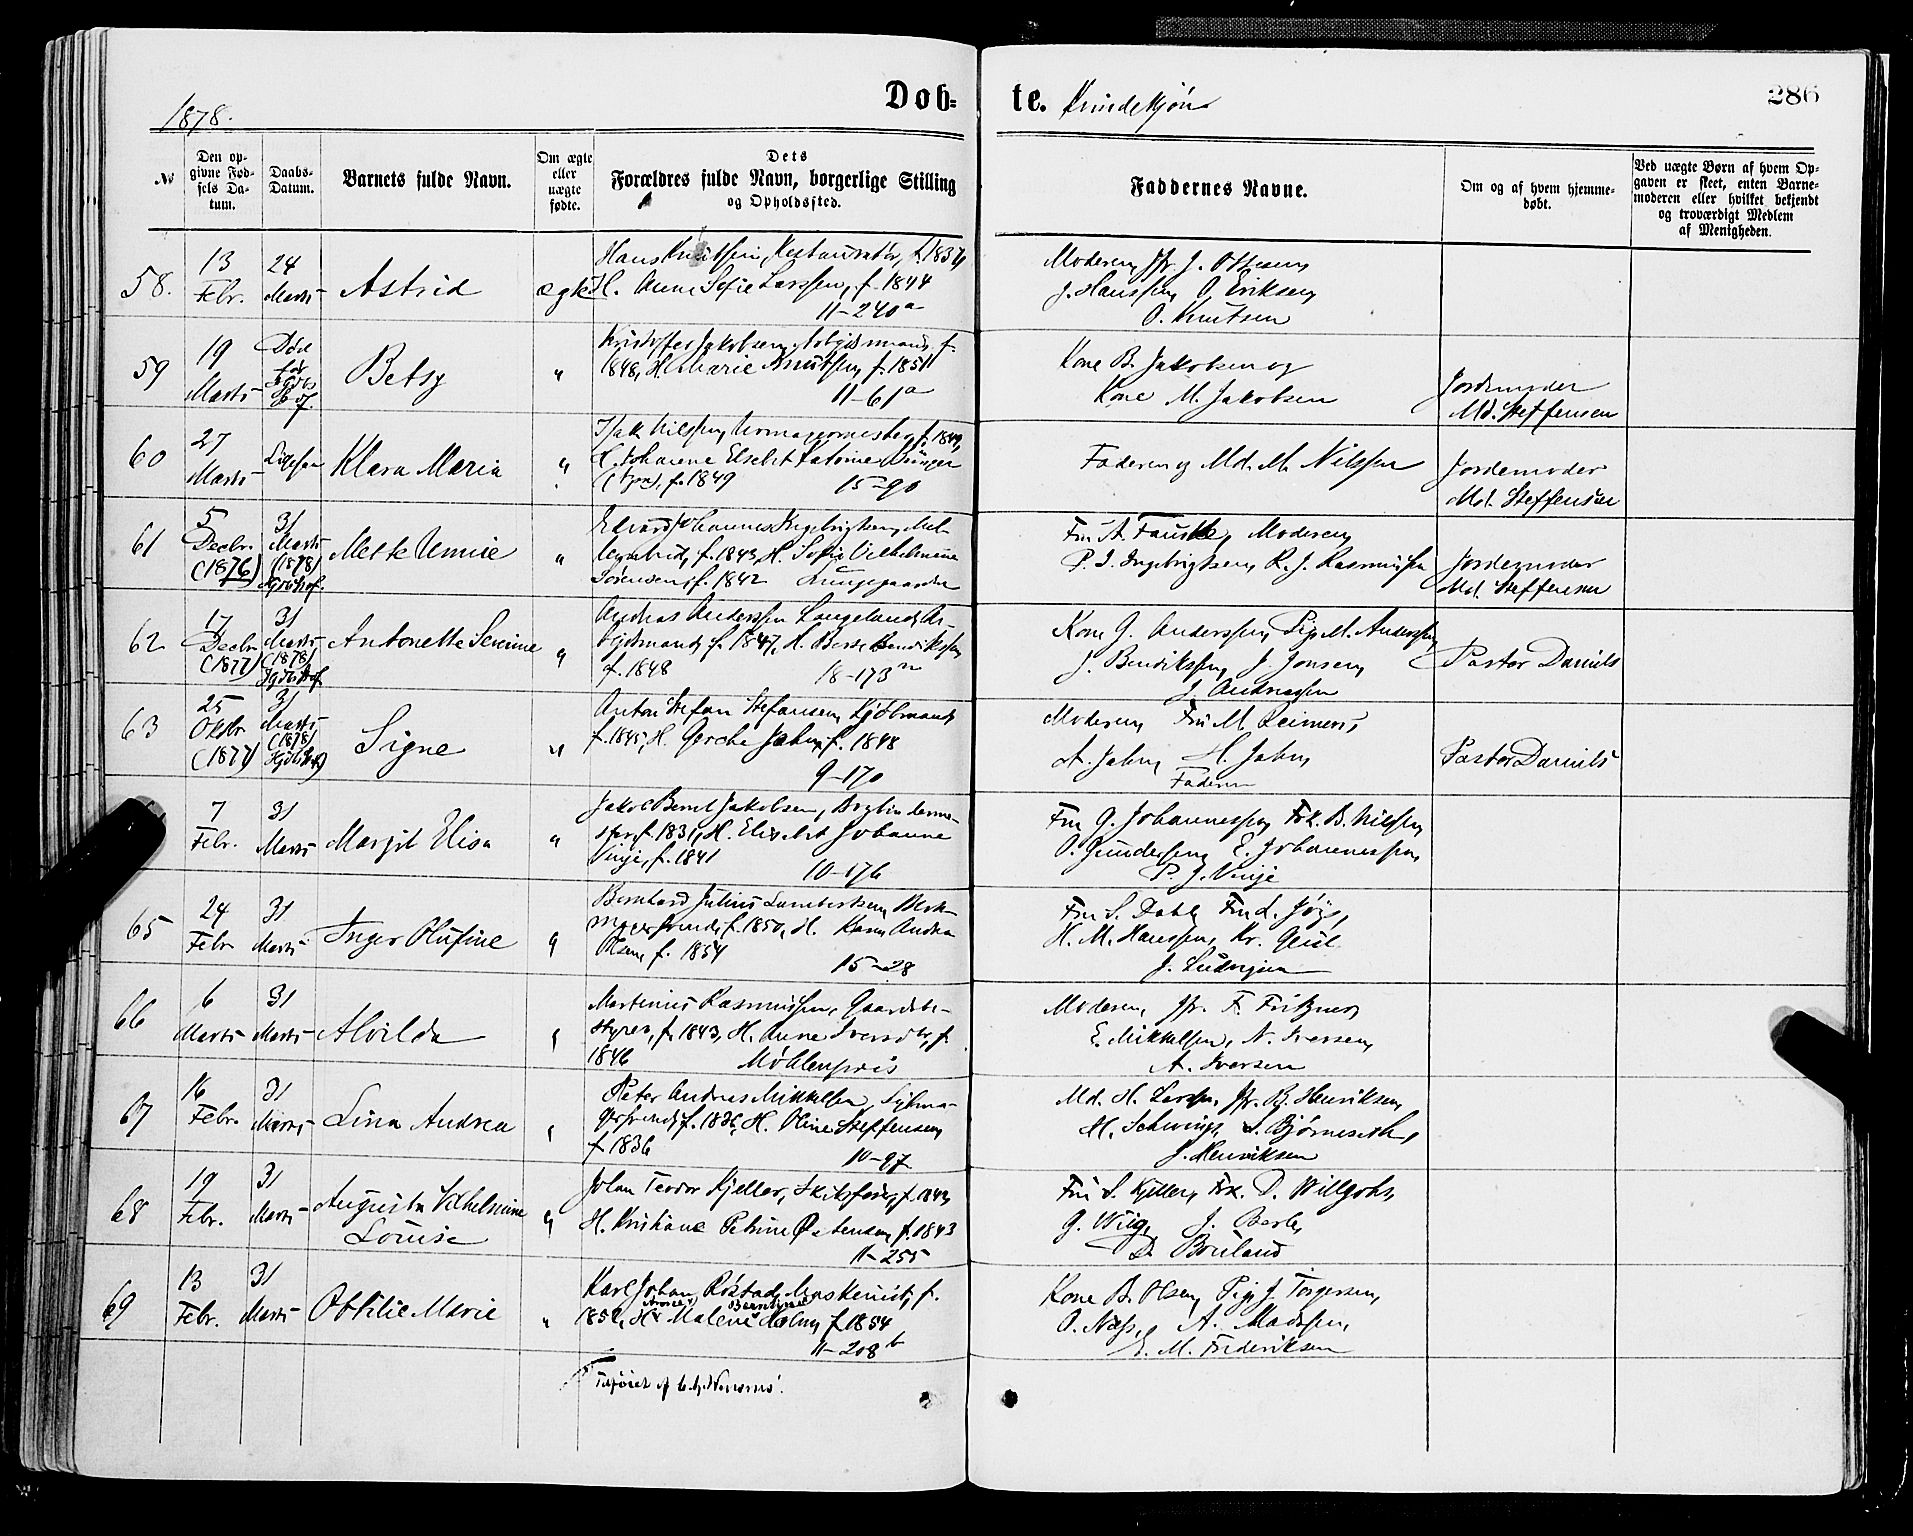 Døb-
te. Kvindekjøn
286
1878.
№
Den op-
givne Fød-
sels Da-
tum.
Daabs-
Datum.
Barnets fulde Navn.
Om ægte
eller
uægte
fødte.
Dets
Forældres fulde Navn, borgerlige Stilling
og Opholdssted.
Faddernes Navne.
Om og af hvem hjemme-
døbt.
Ved uægte Børn af hvem Op-
gaven er skeet, enten Barne-
moderen eller hvilket bekjendt
og troværdigt Medlem
af Menigheden.
58.
13
Febr.
24
Marts
Astrid
ægte
Hans Knutssen, Restauratør, f. 1834,
H. Anne Sofie Larssen, f. 1844
11-240a
Moderen, Jfr. J. Ottesen,
J. Hanssen, O. Eriksen,
O. Knutsen
59
19
Marts
Død
før
Betsy
"
Kristoffer Jakobsen, Arbejdsmand, f.
1848, H. Marie Knutssen f. 1851
11-61a
Kone B. Jakobsen og
Kone M. Jakobsen
Jordemoder
Md. Steffensen
60
27
Marts
Ligesaa
Klara Maria
"
Isak Nilssen, f. 1849,
H. Johanne Elsebet Katrine
f. 1849
15-90
Faderen og Md. M. Nilssen
Jordemoder
Md. Steffensen
61
5
Decbr.
(1876)
31
Marts
(1878)
Mette Unnie
"
Edvard Johannes Ingebrigtsen,
f. 1843, H. Sofie Vilhelmine
Sørensen, f. 1842 Lungegaarden
Fru A. Fauske, Moderen,
P. I. Ingebrigtsen, R. J. Rasmussen
Jordemoder
Md. Steffensen
62
17
Decbr.
(1877)
31
Marts
(1878)
Antonette Severine
"
Andreas Anderssen Langeland, Ar-
bejdsmand, f. 1847, H. Berte Henrikssen
f. 1848
18-173
Kone G. Anderssen, Pige M. Anderssen,
J. Henrikssen, J. Jonsen,
J. Andreassen
Pastor Daniels
63
25
Oktbr.
(1877)
31
Marts
(1878)
Signe
"
Anton Stefan Stefansen, Kjøbmand,
f. 1845, H. Gerche Jahn, f. 1848
9-170
Moderen, Fru M. Reimers,
A. Jahn, H. Jahn,
Faderen
Pastor Daniels
7
Febr.
31
Marts
Margit Elisa
"
Jakob Bernt Jakobsen, Bogbinderme-
ster, f. 1831, H. Elisabet Johanne
Vinje, f. 1841
10-176
Fru G. Johannessen, Frk. B. Nilssen,
O. Gundersen, E. Johannessen,
P. J. Vinje
65
24
Febr.
31
Marts
Inger Olufine
"
Bernhard Julius Lambertsen, Blok-
magersvend, f. 1850, H. Karen Andrea
Olsen, f. 1854
15-28
Fru S. Dahl, Fru L.
H. M. Hanssen, Kr.
J. Ludvigsen
66
6
Marts
31
Marts
Alvilda
"
Martinus Rasmussen, Gaardsbe-
styrer, f. 1843, H. Anne Iversdtr, f.
1846 Møhlenpris
Moderen, Jfr. F. Fritzner,
E. Mikkelsen, N. Iversen,
A. Iversen
67
16
Febr.
31
Marts
Lina Andrea
"
Peter Andreas Mikkelsen,
f. 1836, H. Oline Steffensen,
f. 1836
10-97
Md. H. Larsen, Jfr. B. Henriksen,
M. Schwings, S.
J. Henriksen
68
19
Febr.
31
Marts
Augusta Vilhelmine
Louise
"
Johan Teodor Kjeller, Skibsfører, f. 1842,
H. Kristiane Petrine Petersen, f. 1843
11-255
Fru S. Kjeller, Frk. D. Willgohs,
G. Wiig, J. Berle,
D. Bruland
69
13
Febr.
31
Marts
Ottilie Marie
"
Karl Johan Røstad, Maskinist, f.
1852, H. Malene Holm f. 1854
Anne Berntine
11-208b
Kone B. Olsen, Pige J. Torgersen,
O. Næss, A. Madsen,
E. M. Frederiksen
Tilføiet af